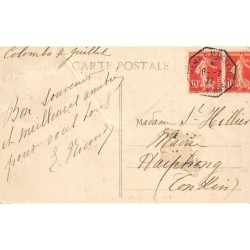 Colombo 7 Juillet
CARTE POSTALE
Bon souvenir
et meilleures amitiés
pour vous tous
E. Ricour
Madame St Hellier
Mairie
Haïphong
(Tonkin)
10